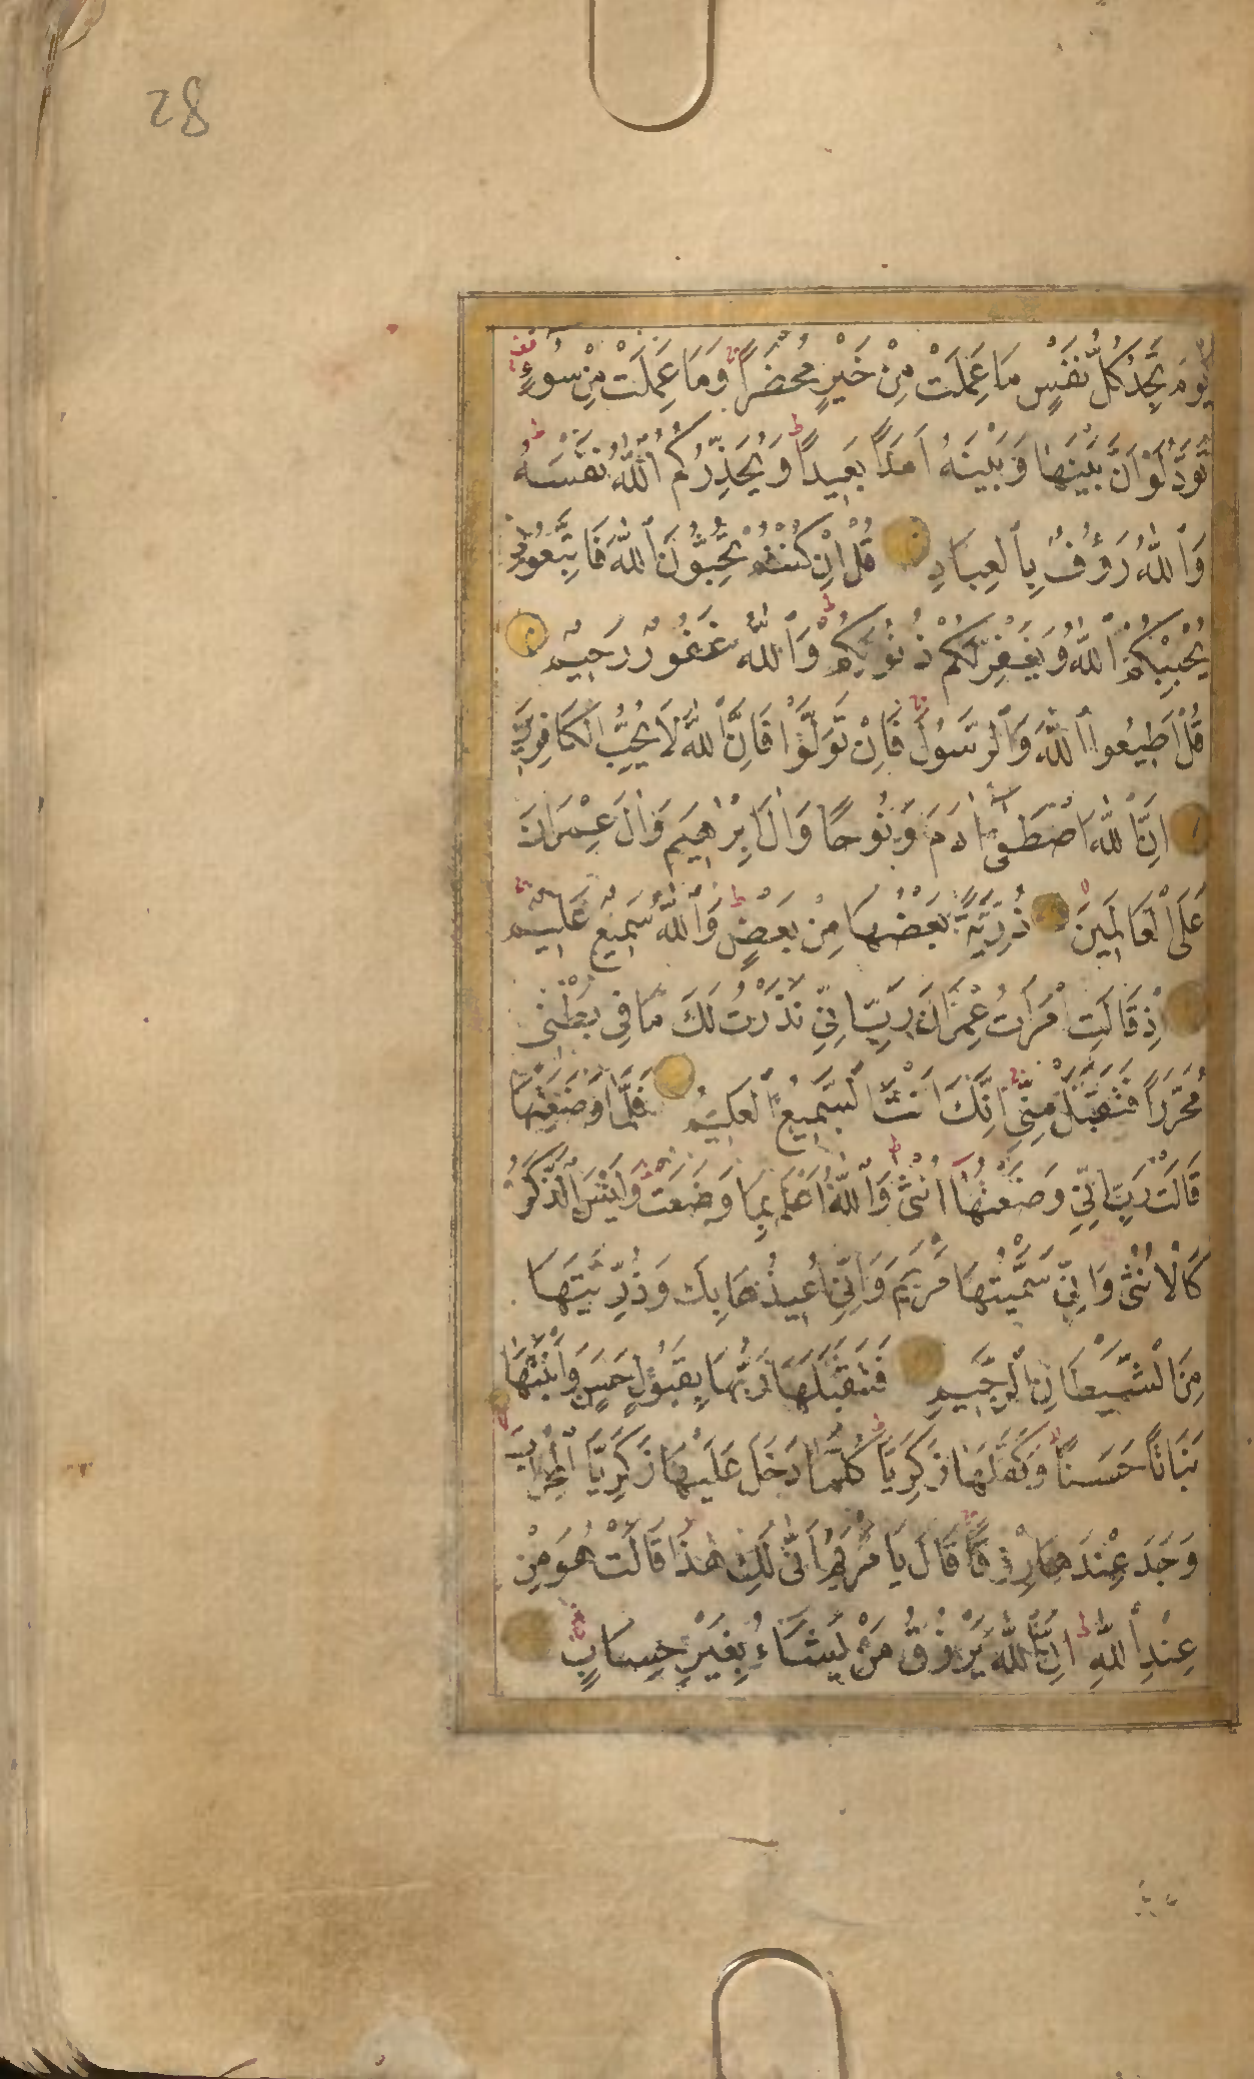 28
يَوْمَ تَجِدُ كُلُّ نَفْسٍ مَا عَمِلَتْ مِنْ خَيْرٍ مُحْضَرًا وَمَا عَمِلَتْ مِنْ سُوءٍ
تَوَدُّ لَوْ اَنَّ بَيْنَهَا وَبَيْنَهُ اَمَدًا بَعِيدًا وَيُحَذِّرُكُمُ اللّٰهُ نَفْسَهُ
وَاللّٰهُ رَؤُفٌ بِالْعِبَادِ قُلْ اِنْ كُنْتُمْ تُحِبُّونَ اللّٰهَ فَاتَّبِعُونِى
يُحْبِبْكُمُ اللّٰهُ وَيَغْفِرْ لَكُمْ ذُنُوبَكُمْ وَاللّٰهُ غَفُورٌ رَحِيمٌ
قُلْ اَطِيعُوا اللّٰهَ وَالرَّسُولَ فَاِنْ تَوَلَّوْا فَاِنَّ اللّٰهَ لَا يُحِبُّ الْكَافِرِينَ
اِنَّ اللّٰهَ اصْطَفٰى اٰدَمَ وَنُوحًا وَاٰلَ اِبْرٰهِيمَ وَاٰلَ عِمْرَانَ
عَلَى الْعَالَمِينَ ذُرِّيَّةً بَعْضُهَا مِنْ بَعْضٍ وَاللّٰهُ سَمِيعٌ عَلِيمٌ
اِذْ قَالَتِ امْرَاَتُ عِمْرَانَ رَبِّ اِنِّى نَذَرْتُ لَكَ مَا فِى بَطْنِى
مُحَرَّرًا فَتَقَبَّلْ مِنِّى اِنَّكَ اَنْتَ السَّمِيعُ الْعَلِيمُ فَلَمَّا وَضَعَتْهَا
قَالَتْ رَبِّ اِنِّى وَضَعْتُهَا اُنْثٰى وَاللّٰهُ اَعْلَمُ بِمَا وَضَعَتْ وَلَيْسَ الذَّكَرُ
كَالْاُنْثٰى وَاِنِّى سَمَّيْتُهَا مَرْيَمَ وَاِنِّى اُعِيذُهَا بِكَ وَذُرِّيَّتَهَا
مِنَ الشَّيْطَانِ الرَّجِيمِ فَتَقَبَّلَهَا رَبُّهَا بِقَبُولٍ حَسَنٍ وَاَنْبَتَهَا
نَبَاتًا حَسَنًا وَكَفَّلَهَا زَكَرِيَّا كُلَّمَا دَخَلَ عَلَيْهَا زَكَرِيَّا الْمِحْرَابَ
وَجَدَ عِنْدَهَا رِزْقًا قَالَ يَا مَرْيَمُ اَنّٰى لَكِ هٰذَا قَالَتْ هُوَ مِنْ
عِنْدِ اللّٰهِ اِنَّ اللّٰهَ يَرْزُقُ مَنْ يَشَاءُ بِغَيْرِ حِسَابٍ